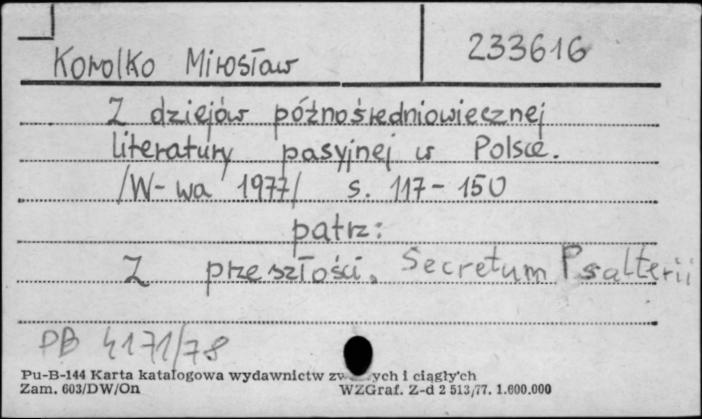 Korolko Mirosław 233616
Z dziejów późnośredniowiecznej
literatury pasyjnej w Polsce.
/W-wa 1977/ s. 117-150
patrz:
Z przeszłości. Secretum Psalterii
PB 4171/78
Pu-B-144 Karta katalogowa wydawnictw ych i ciągły'ch
Zam. 603/DW/On WZGraf. Z-d 2 513/77. 1.600.000